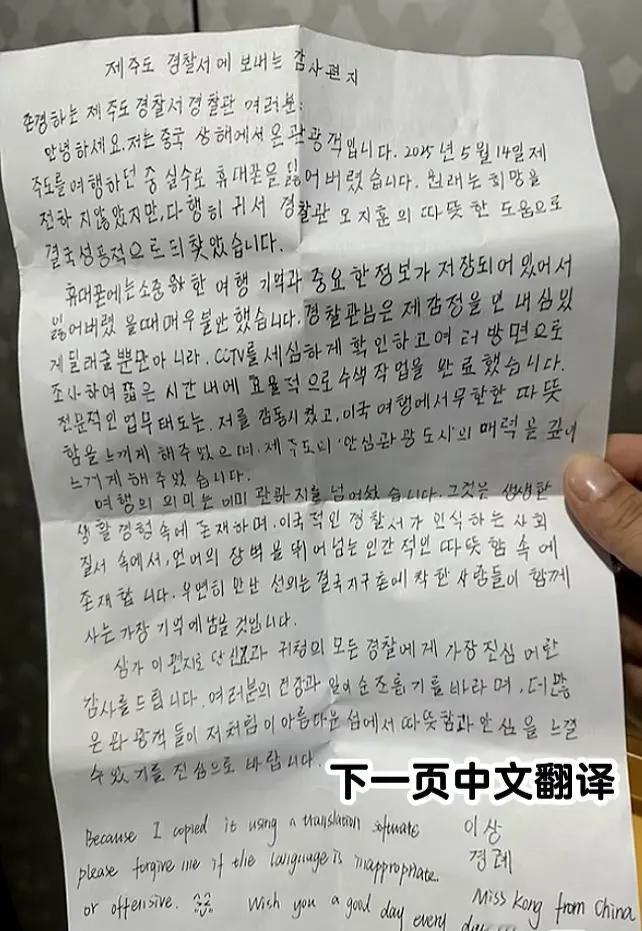 제주도 경찰서에 보내는 감사편지
존경하는 제주도경찰서경찰관 여러분:
안녕하세요. 저는 중국 상해에서 온 관광객입니다. 2025년 5월 14일 제
주도를여행하던 중 실수로 휴대폰을 잃어 버렸습니다. 원래는 희망을
전하 지않았지만, 다행히 귀서 경찰관 오지훈의 따뜻한 도움으로
결국성공적으로 되찾았습니다.
휴대폰에는소중 한 여행 기억과 중요한정보가 저장되어있어서
잃어버렸 을때매우불안했습니다. 경찰관님은 제감정을 인내심있
게달래줬을뿐만아니라, CCTV를 세심하게 확인하고여러방면으로
조사하여 짧은 시간내에 효율적으로수색작업을 완료했습니다.
전문적인업무태도는. 저를 감동시켰고, 이국 여행에서무한한 따뜻
함을느끼게 해주었으며, 제주도의 '안심관광도시'의 매력을 깊이
느끼게 해주었 습니다.
여행의 의미는 이미 관광지를넘어섰 습니다. 그것은 생생한
생활경험속에존재하며, 이국적인 경찰서가 인식하는 사회
질서 속에서, 언어의 장벽을 뛰어넘는 인간적인 따뜻함 속에
존재합니다. 우연히 만난 선의는결국지구촌에 착한사람들이 함께
사는 가장 기억에남을것입니다.
삼가 이편지로 당신과 귀청의 모든 경찰에게 가장진심 어린
감사를드립니다. 여러분의 건강과 일이순조롭기를바라며, 더많
은관광객들이 저처럼 이아름다운 섬에서 따뜻함과안심을 느낄
수있기를진심으로 바랍니다.
下一页中文翻译
Because I copied it using a translation software 이상
please forgive me if the language is inappropriate. 경례
or offensive. Wish you a good day every day Miss Kong from China